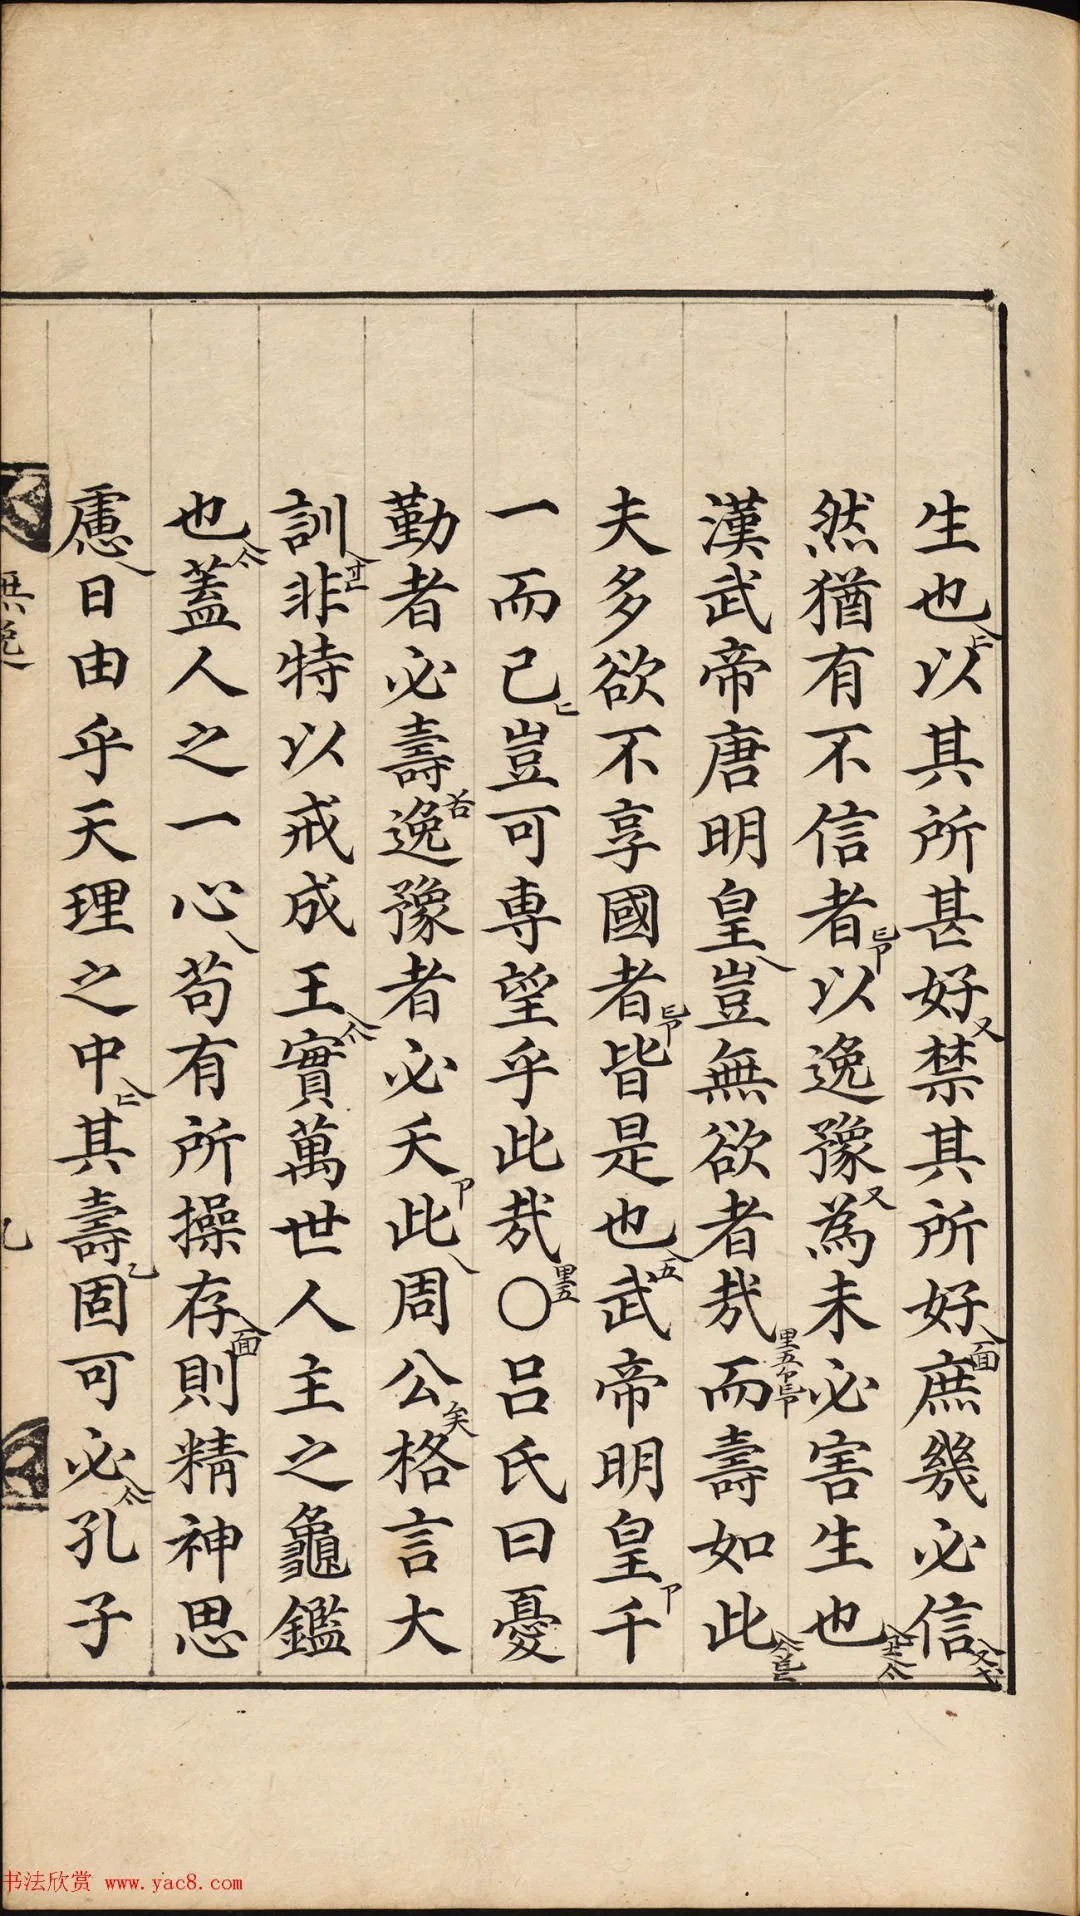 生也以其所甚好禁其所好庶幾必信
然猶有不信者以逸豫為未必害生也
漢武帝唐明皇豈無欲者哉而壽如此
夫多欲不享國者皆是也武帝明皇千
一而已豈可專望乎此哉○呂氏曰憂
勤者必壽逸豫者必夭此周公格言大
訓非特以戒成王實萬世人主之龜鑑
也蓋人之一心苟有所操存則精神思
慮日由乎天理之中其壽固可必孔子
無逸
书法欣赏 www.yac8.com